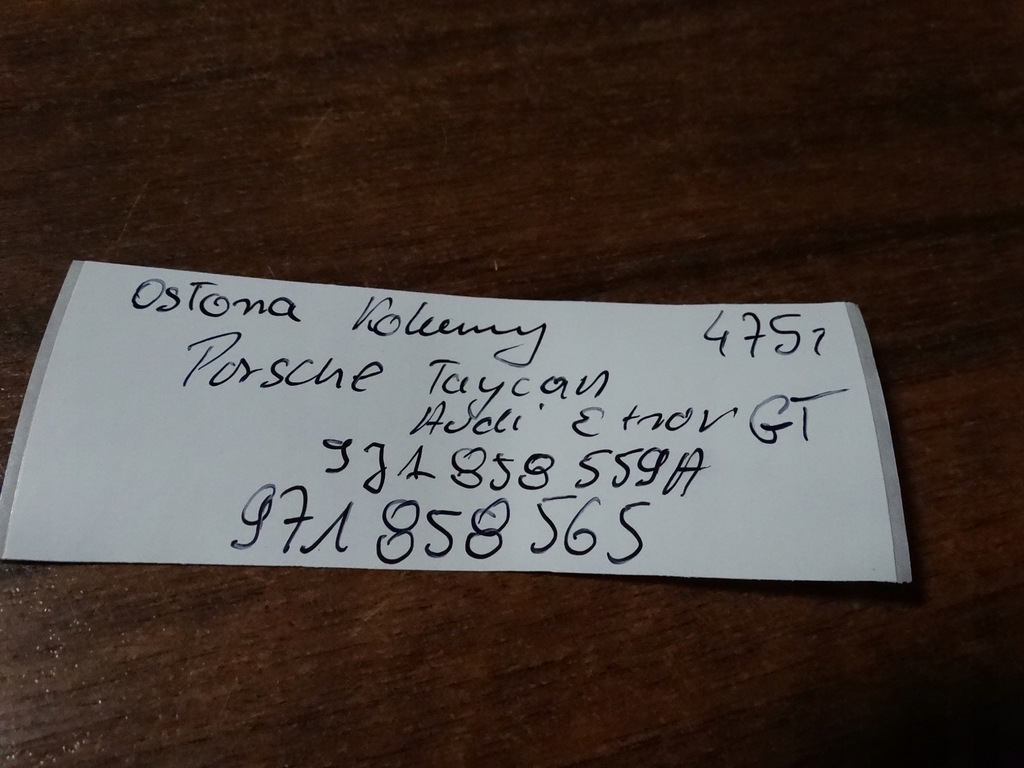 Osłona Kolumny 475z
Porsche Taycan
Audi E tron GT
9J1 858 559A
971 858 565